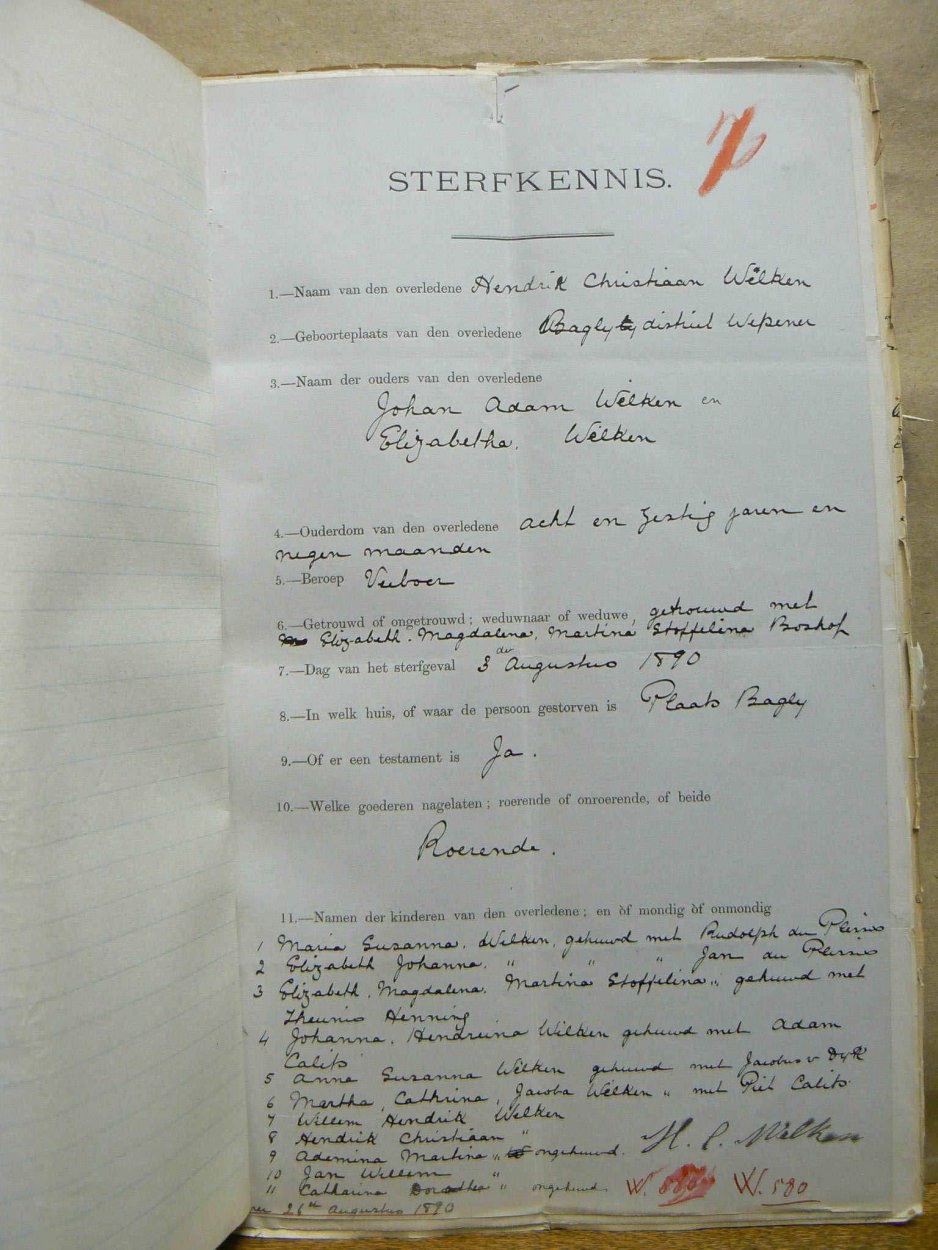 STERFKENNIS.
1.—Naam van den overledene Hendrik Christiaan Wilken
2.—Geboorteplaats van den overledene Bagly district Wepener
3.—Naam der ouders van den overledene
Johan Adam Wilken en
Elizabetha. Wilken
4.—Ouderdom van den overledene acht en zestig jaren en
negen maanden
5.—Beroep Veeboer
6.—Getrouwd of ongetrouwd; weduwnaar of weduwe, getrouwd met
Elizabeth. Magdalena, Martina Stoffelina Boshof
7.—Dag van het sterfgeval 3der Augustus 1890
8.—In welk huis, of waar de persoon gestorven is Plaats Bagly
9.—Of er een testament is Ja.
10.—Welke goederen nagelaten; roerende of onroerende, of beide
Roerende.
11.—Namen der kinderen van den overledene; en òf mondig òf onmondig
1 Maria Susanna. Wilken, gehuwd met Rudolph du Plessis
2 Elizabeth Johanna. " " " Jan du Plessis
3 Elizabeth. Magdalena. Martina Stoffelina " gehuwd met
Theunis Henning
4 Johanna. Hendreina Wilken gehuwd met Adam
Calits
5 Anna Susanna Wilken gehuwd met Jacobus v Dyk
6 Martha, Cathrina, Jacoba Wilken " met Piet Calits
7 Willem Hendrik Wilken
8 Hendrik Christiaan "
9 Ademina Martina " ongehuwd. H. C. Wilken
10 Jan Willem "
11 Catharina Dorothea " ongehuwd. W. 580
26th Augustus 1890